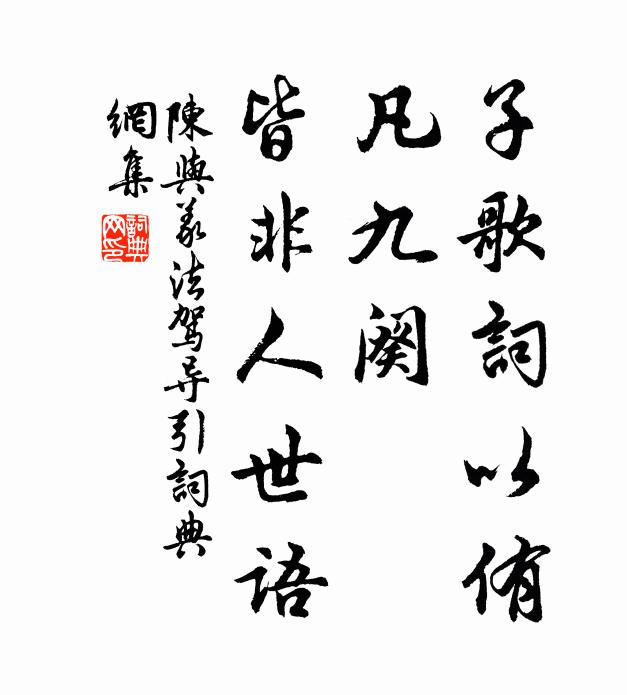 子歌詞以侑
凡九闋
皆非人世語
陳與義法駕导引詞典
網集
詞典
网印